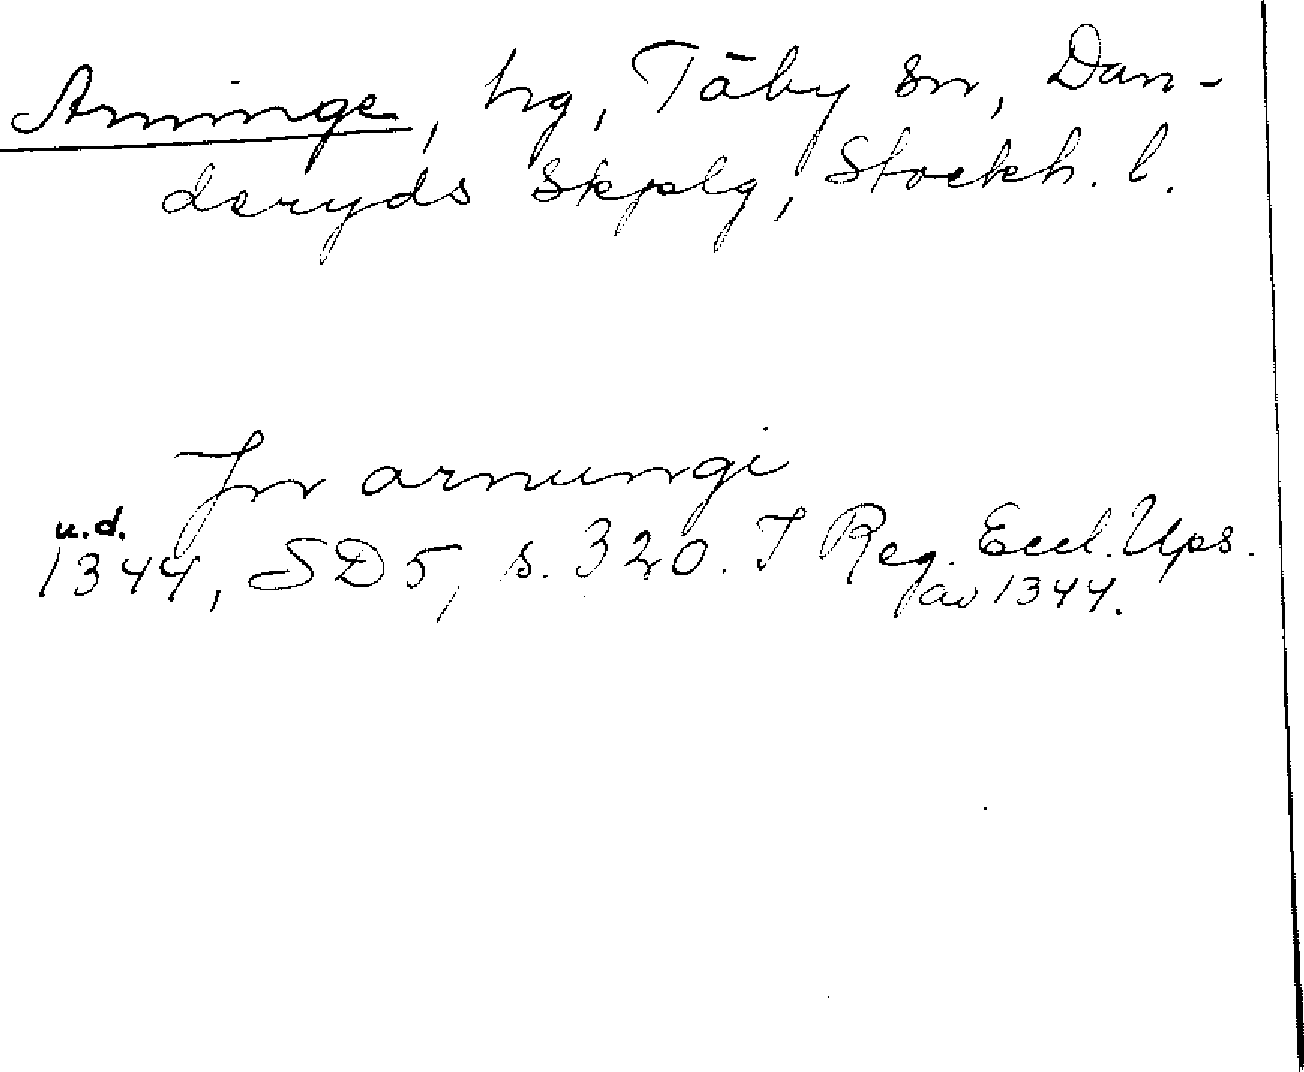 Arninge, hg, Täby sn, Dan-
deryds Skplg, Stockh. l.
Jn arnungi
u.d.
1344, SD 5, s. 320. I Reg. Eccl. Ups.
av 1344.